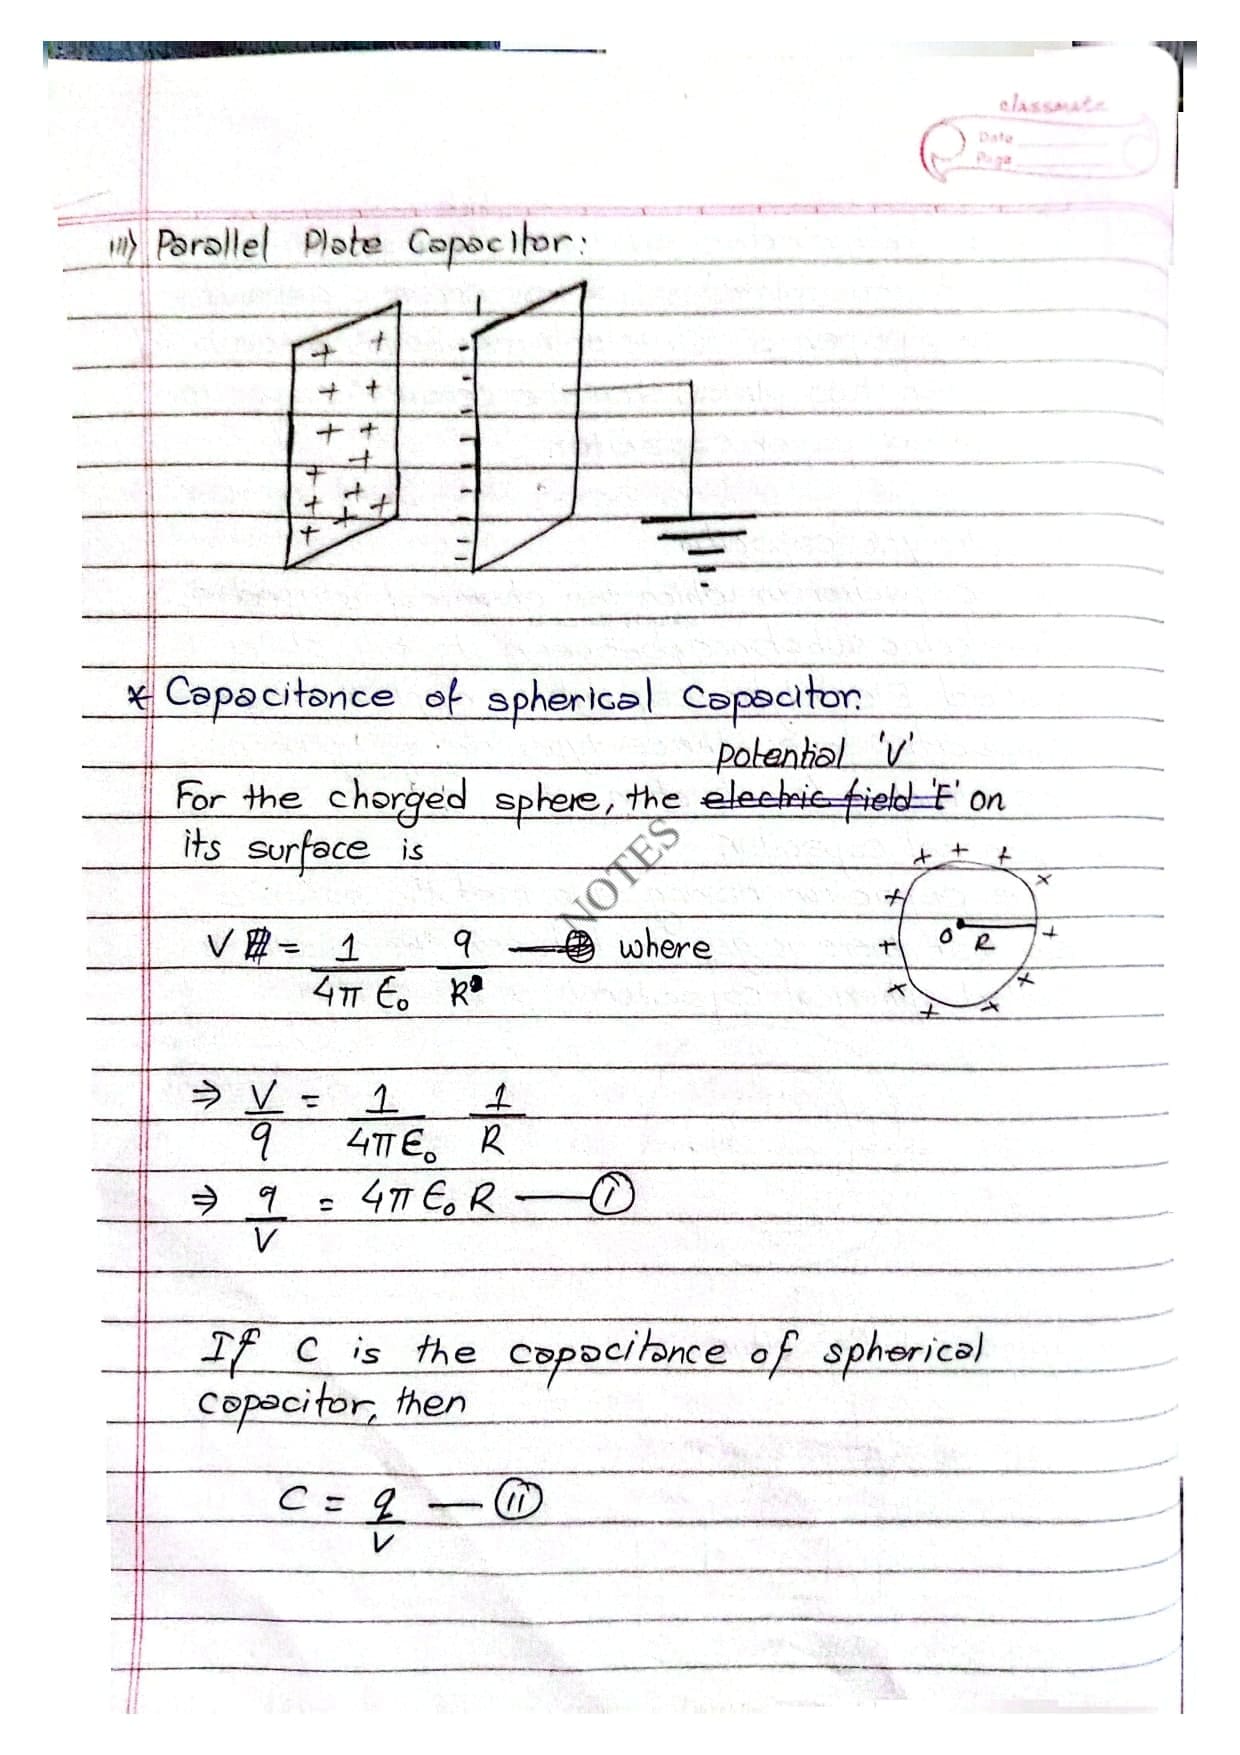 classmate
Date
Page
iii) Parallel Plate Capacitor:
* Capacitance of spherical Capacitor.
potential 'V'
For the charged sphere, the electric field 'E' on
its surface is
NOTES
V = 1/4π ϵ₀ q/R where
O R
⇒ V/q = 1/4π ϵ₀ 1/R
⇒ q/V = 4π ϵ₀ R — (i)
If C is the capacitance of spherical
capacitor, then
C = q/V — (ii)